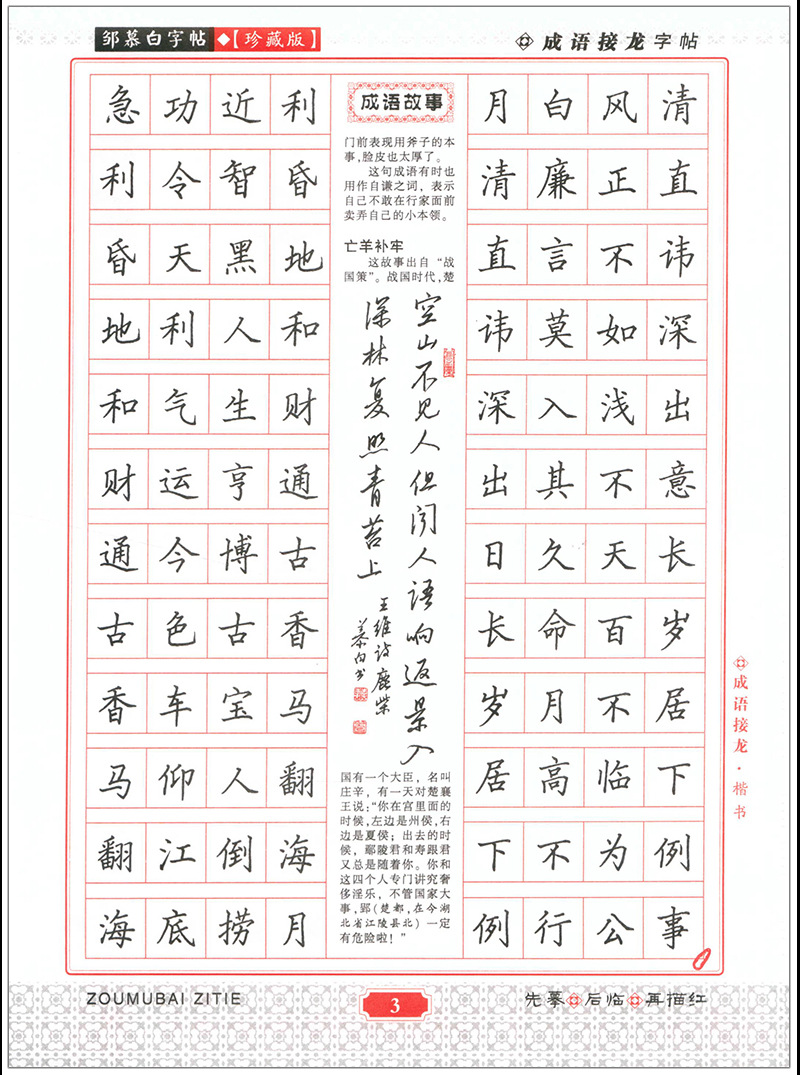 邹慕白字帖◆【珍藏版】
成语接龙字帖
急功近利
利令智昏
昏天黑地
地利人和
和气生财
财运亨通
通今博古
古色古香
香车宝马
马仰人翻
翻江倒海
海底捞月
成语故事
门前表现用斧子的本
事,脸皮也太厚了。
这句成语有时也
用作自谦之词，表示
自己不敢在行家面前
卖弄自己的小本领。
亡羊补牢
这故事出自“战
国策”。战国时代,楚
空山不见人但闻人语响返景入
深林复照青苔上
王维诗鹿柴
慕白书
国有一个大臣，名叫
庄辛，有一天对楚襄
王说:“你在宫里面的
时候,左边是州侯,右
边是夏侯；出去的时
候，鄢陵君和寿跟君
又总是随着你。你和
这四个人专门讲究奢
侈淫乐，不管国家大
事,郢(楚都,在今湖
北省江陵县北)一定
有危险啦！”
月白风清
清廉正直
直言不讳
讳莫如深
深入浅出
出其不意
日久天长
长命百岁
岁月不居
居高临下
下不为例
例行公事
成语接龙·楷书
ZOUMUBAI ZITIE
3
先摹后临再描红